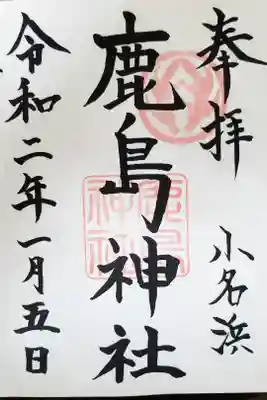 奉拝
小名浜
鹿島神社
令和二年一月五日
鹿島
神社